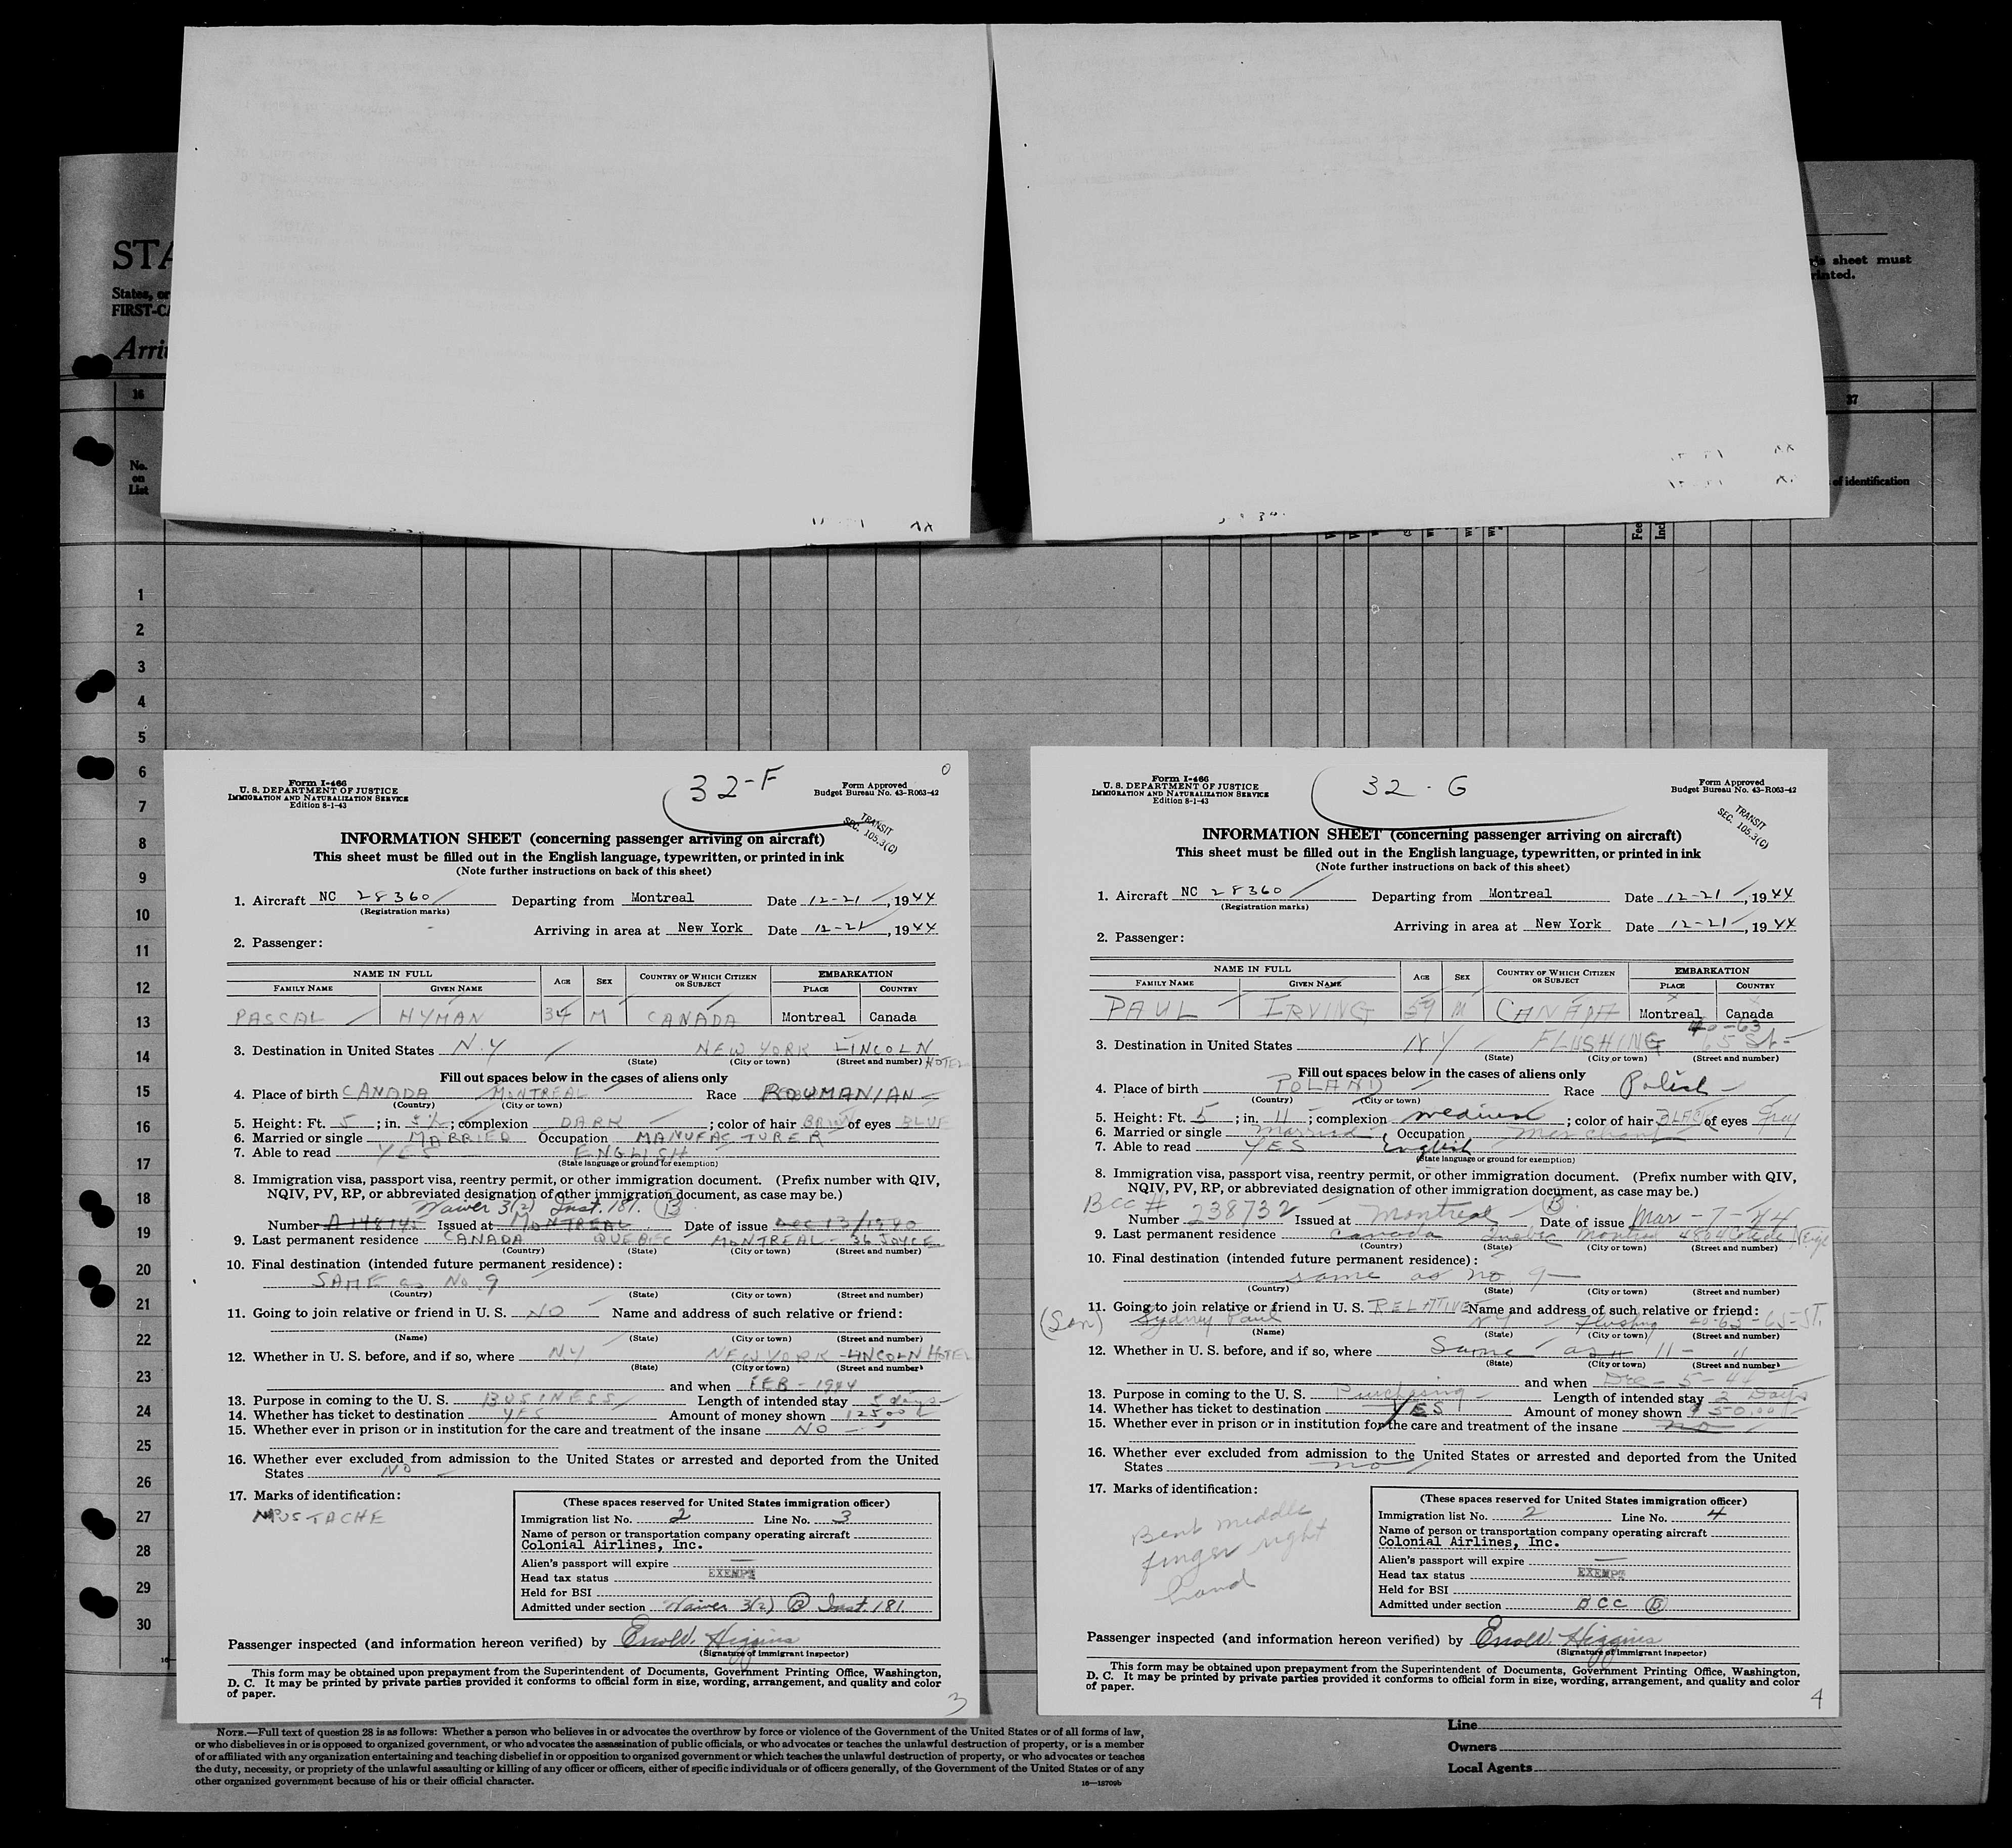 STA
States, or
FIRST-CA
Arri
's sheet must
rinted.
16
37
No.
on
List
of identification
Fee
Incl
1
2
3
4
5
6
7
8
9
10
11
12
13
14
15
16
17
18
19
20
21
22
23
24
25
26
27
28
29
30
32-F
Form I-466
U. S. DEPARTMENT OF JUSTICE
IMMIGRATION AND NATURALIZATION SERVICE
Edition 8-1-43
Form Approved
Budget Bureau No. 43-R063-42
TRANSIT
SEC. 105.3(C)
INFORMATION SHEET (concerning passenger arriving on aircraft)
This sheet must be filled out in the English language, typewritten, or printed in ink
(Note further instructions on back of this sheet)
1. Aircraft NC 28360 Departing from Montreal Date 12-21, 1944
(Registration marks)
Arriving in area at New York Date 12-21, 1944
2. Passenger:
NAME IN FULL AGE SEX COUNTRY OF WHICH CITIZEN OR SUBJECT EMBARKATION
FAMILY NAME GIVEN NAME PLACE COUNTRY
PASCAL HYMAN 34 M CANADA Montreal Canada
3. Destination in United States N.Y NEW YORK LINCOLN HOTEL
(State) (City or town) (Street and number)
Fill out spaces below in the cases of aliens only
4. Place of birth CANADA MONTREAL Race ROUMANIAN
(Country) (City or town)
5. Height: Ft. 5; in. 5½; complexion DARK; color of hair BRN of eyes BLUE
6. Married or single MARRIED Occupation MANUFACTURER
7. Able to read YES ENGLISH
(State language or ground for exemption)
8. Immigration visa, passport visa, reentry permit, or other immigration document. (Prefix number with QIV,
NQIV, PV, RP, or abbreviated designation of other immigration document, as case may be.)
Waiver 3(2) Inst. 181. B
Number A 148145 Issued at MONTREAL Date of issue DEC 13/1940
9. Last permanent residence CANADA QUEBEC MONTREAL - 36 JOYCE
(Country) (State) (City or town) (Street and number)
10. Final destination (intended future permanent residence):
SAME as No. 9
(Country) (State) (City or town) (Street and number)
11. Going to join relative or friend in U. S. NO Name and address of such relative or friend:
(Name) (State) (City or town) (Street and number)
12. Whether in U. S. before, and if so, where NY NEW YORK - LINCOLN HOTEL
(State) (City or town) (Street and number)
and when FEB - 1944
13. Purpose in coming to the U. S. BUSINESS Length of intended stay 5 days
14. Whether has ticket to destination YES Amount of money shown 125.00
15. Whether ever in prison or in institution for the care and treatment of the insane NO
16. Whether ever excluded from admission to the United States or arrested and deported from the United
States NO
17. Marks of identification:
MUSTACHE
(These spaces reserved for United States immigration officer)
Immigration list No. 2 Line No. 3
Name of person or transportation company operating aircraft
Colonial Airlines, Inc.
Alien's passport will expire —
Head tax status EXEMPT
Held for BSI
Admitted under section Waiver 3(2) B Inst. 181
Passenger inspected (and information hereon verified) by Errol W. Higgins
(Signature of immigrant inspector)
This form may be obtained upon prepayment from the Superintendent of Documents, Government Printing Office, Washington,
D. C. It may be printed by private parties provided it conforms to official form in size, wording, arrangement, and quality and color
of paper.
3
32-G
Form I-466
U. S. DEPARTMENT OF JUSTICE
IMMIGRATION AND NATURALIZATION SERVICE
Edition 8-1-43
Form Approved
Budget Bureau No. 43-R063-42
TRANSIT
SEC. 105.3(C)
INFORMATION SHEET (concerning passenger arriving on aircraft)
This sheet must be filled out in the English language, typewritten, or printed in ink
(Note further instructions on back of this sheet)
1. Aircraft NC 28360 Departing from Montreal Date 12-21, 1944
(Registration marks)
Arriving in area at New York Date 12-21, 1944
2. Passenger:
NAME IN FULL AGE SEX COUNTRY OF WHICH CITIZEN OR SUBJECT EMBARKATION
FAMILY NAME GIVEN NAME PLACE COUNTRY
PAUL IRVING 59 M CANADA Montreal Canada
3. Destination in United States NY FLUSHING 40-63 65 St
(State) (City or town) (Street and number)
Fill out spaces below in the cases of aliens only
4. Place of birth POLAND Race Polish
(Country) (City or town)
5. Height: Ft. 5; in. 11; complexion medium; color of hair BLACK of eyes Gray
6. Married or single Married, Occupation Merchant
7. Able to read YES English
(State language or ground for exemption)
8. Immigration visa, passport visa, reentry permit, or other immigration document. (Prefix number with QIV,
NQIV, PV, RP, or abbreviated designation of other immigration document, as case may be.)
BCC # B
Number 238732 Issued at Montreal Date of issue Mar-7-44
9. Last permanent residence Canada Quebec Montreal 4804
(Country) (State) (City or town) (Street and number)
10. Final destination (intended future permanent residence):
same as no 9
(Country) (State) (City or town) (Street and number)
11. Going to join relative or friend in U. S. RELATIVE Name and address of such relative or friend:
(Son) Sydney Paul NY Flushing 40-63-65-ST.
(Name) (State) (City or town) (Street and number)
12. Whether in U. S. before, and if so, where Same as 11 - "
(State) (City or town) (Street and number)
and when Dec-5-44
13. Purpose in coming to the U. S. Purchasing Length of intended stay 3 Days
14. Whether has ticket to destination YES Amount of money shown $50.00
15. Whether ever in prison or in institution for the care and treatment of the insane no
16. Whether ever excluded from admission to the United States or arrested and deported from the United
States no
17. Marks of identification:
Bent middle
finger right
hand
(These spaces reserved for United States immigration officer)
Immigration list No. 2 Line No. 4
Name of person or transportation company operating aircraft
Colonial Airlines, Inc.
Alien's passport will expire —
Head tax status EXEMPT
Held for BSI
Admitted under section BCC B
Passenger inspected (and information hereon verified) by Errol W. Higgins
(Signature of immigrant inspector)
This form may be obtained upon prepayment from the Superintendent of Documents, Government Printing Office, Washington,
D. C. It may be printed by private parties provided it conforms to official form in size, wording, arrangement, and quality and color
of paper.
4
NOTE.—Full text of question 28 is as follows: Whether a person who believes in or advocates the overthrow by force or violence of the Government of the United States or of all forms of law,
or who disbelieves in or is opposed to organized government, or who advocates the assassination of public officials, or who advocates or teaches the unlawful destruction of property, or is a member
of or affiliated with any organization entertaining and teaching disbelief in or opposition to organized government or which teaches the unlawful destruction of property, or who advocates or teaches
the duty, necessity, or propriety of the unlawful assaulting or killing of any officer or officers, either of specific individuals or of officers generally, of the Government of the United States or of any
other organized government because of his or their official character.
16—18709b
Line
Owners
Local Agents